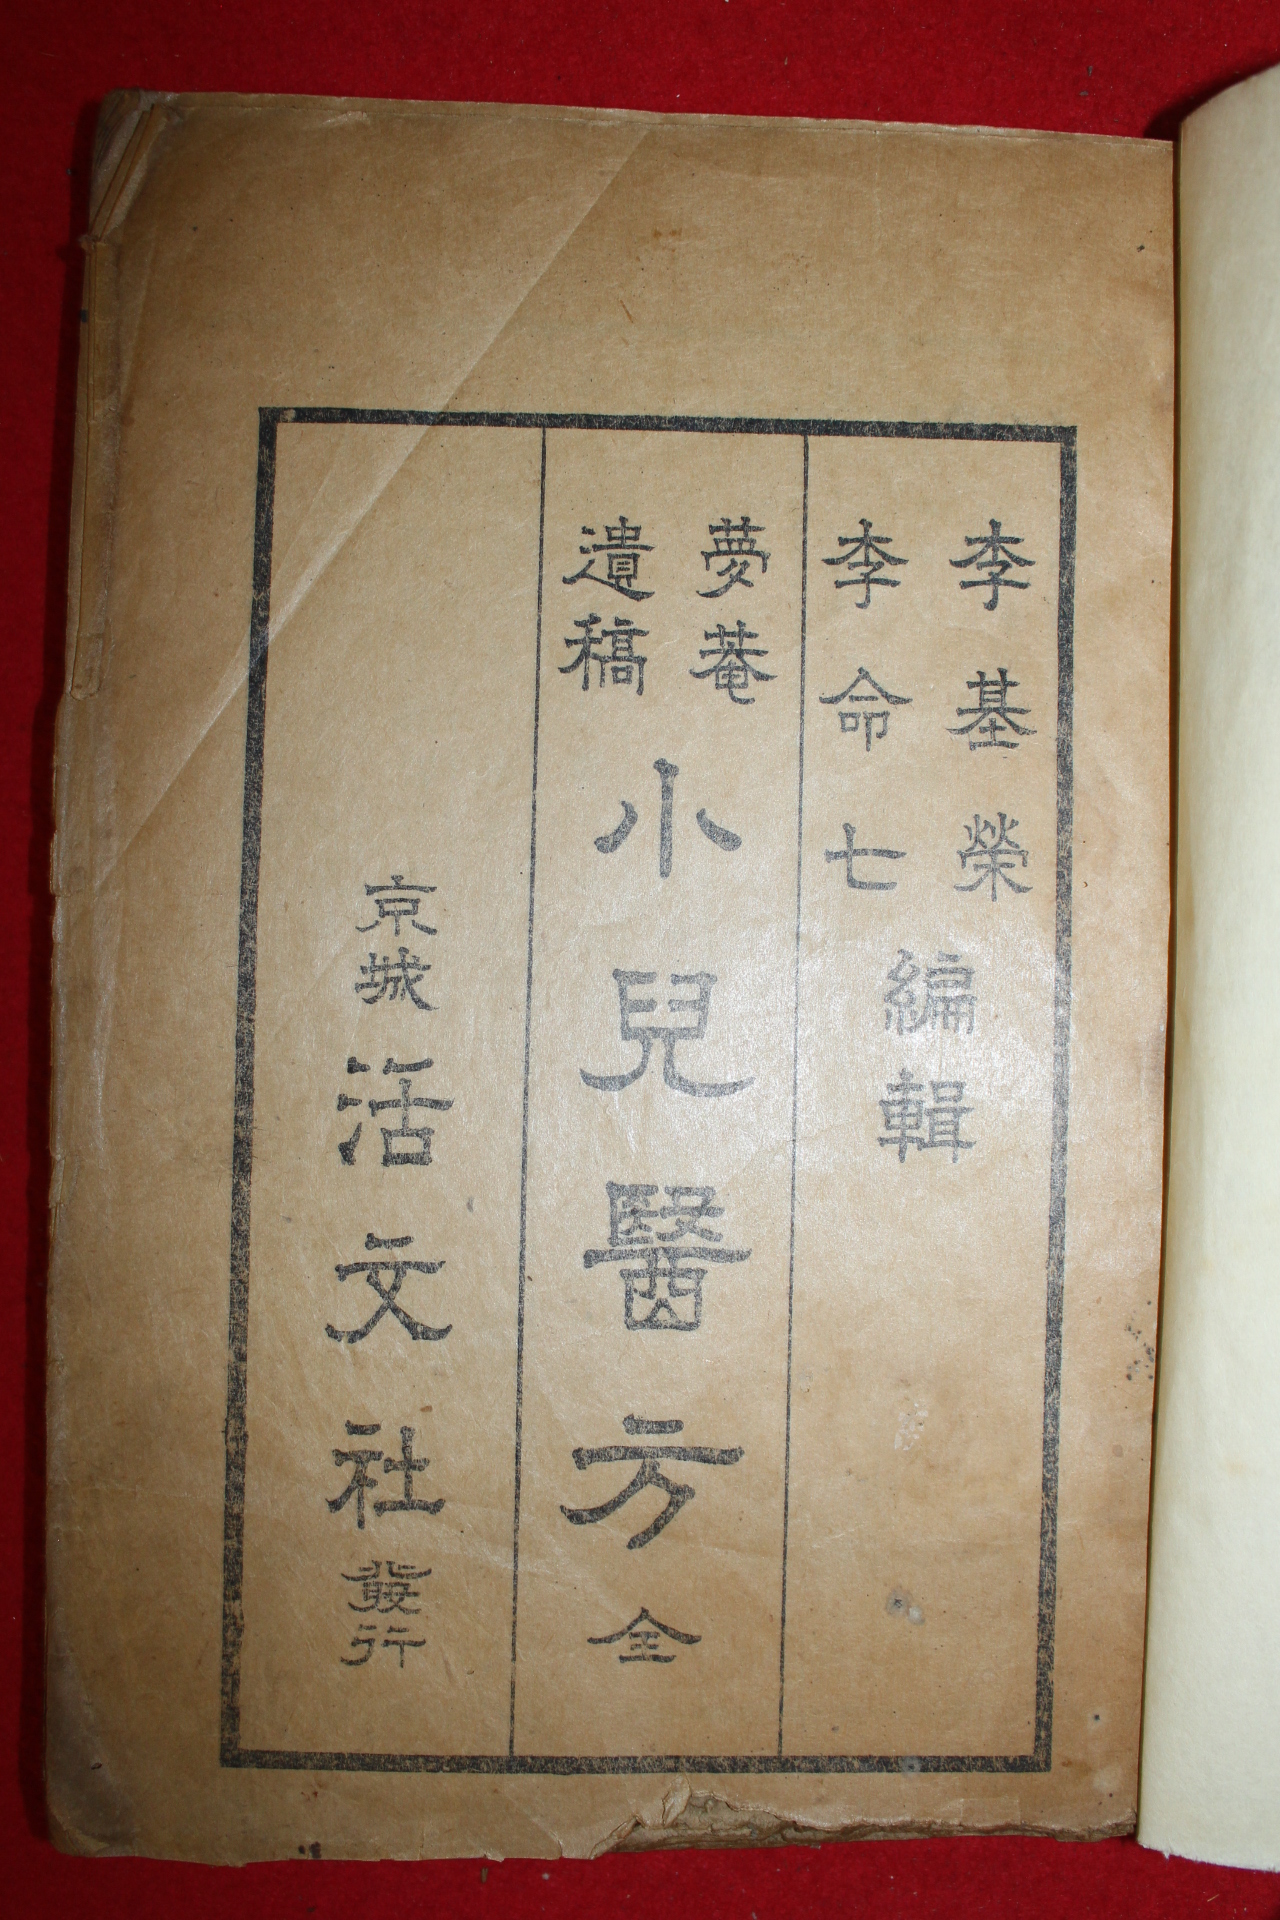 李基榮
李命七
編輯
夢菴
遺稿
小兒醫方全
京城活文社發行